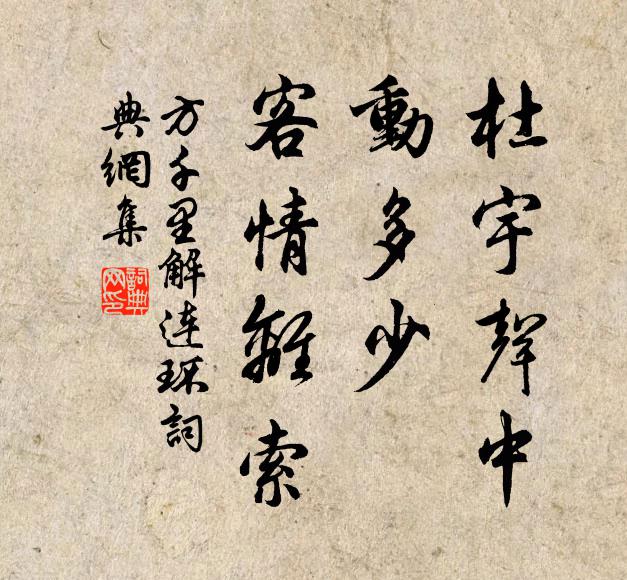 杜宇聲中
動多少
客情離索
方千里解連環詞
典網集
詞典網印